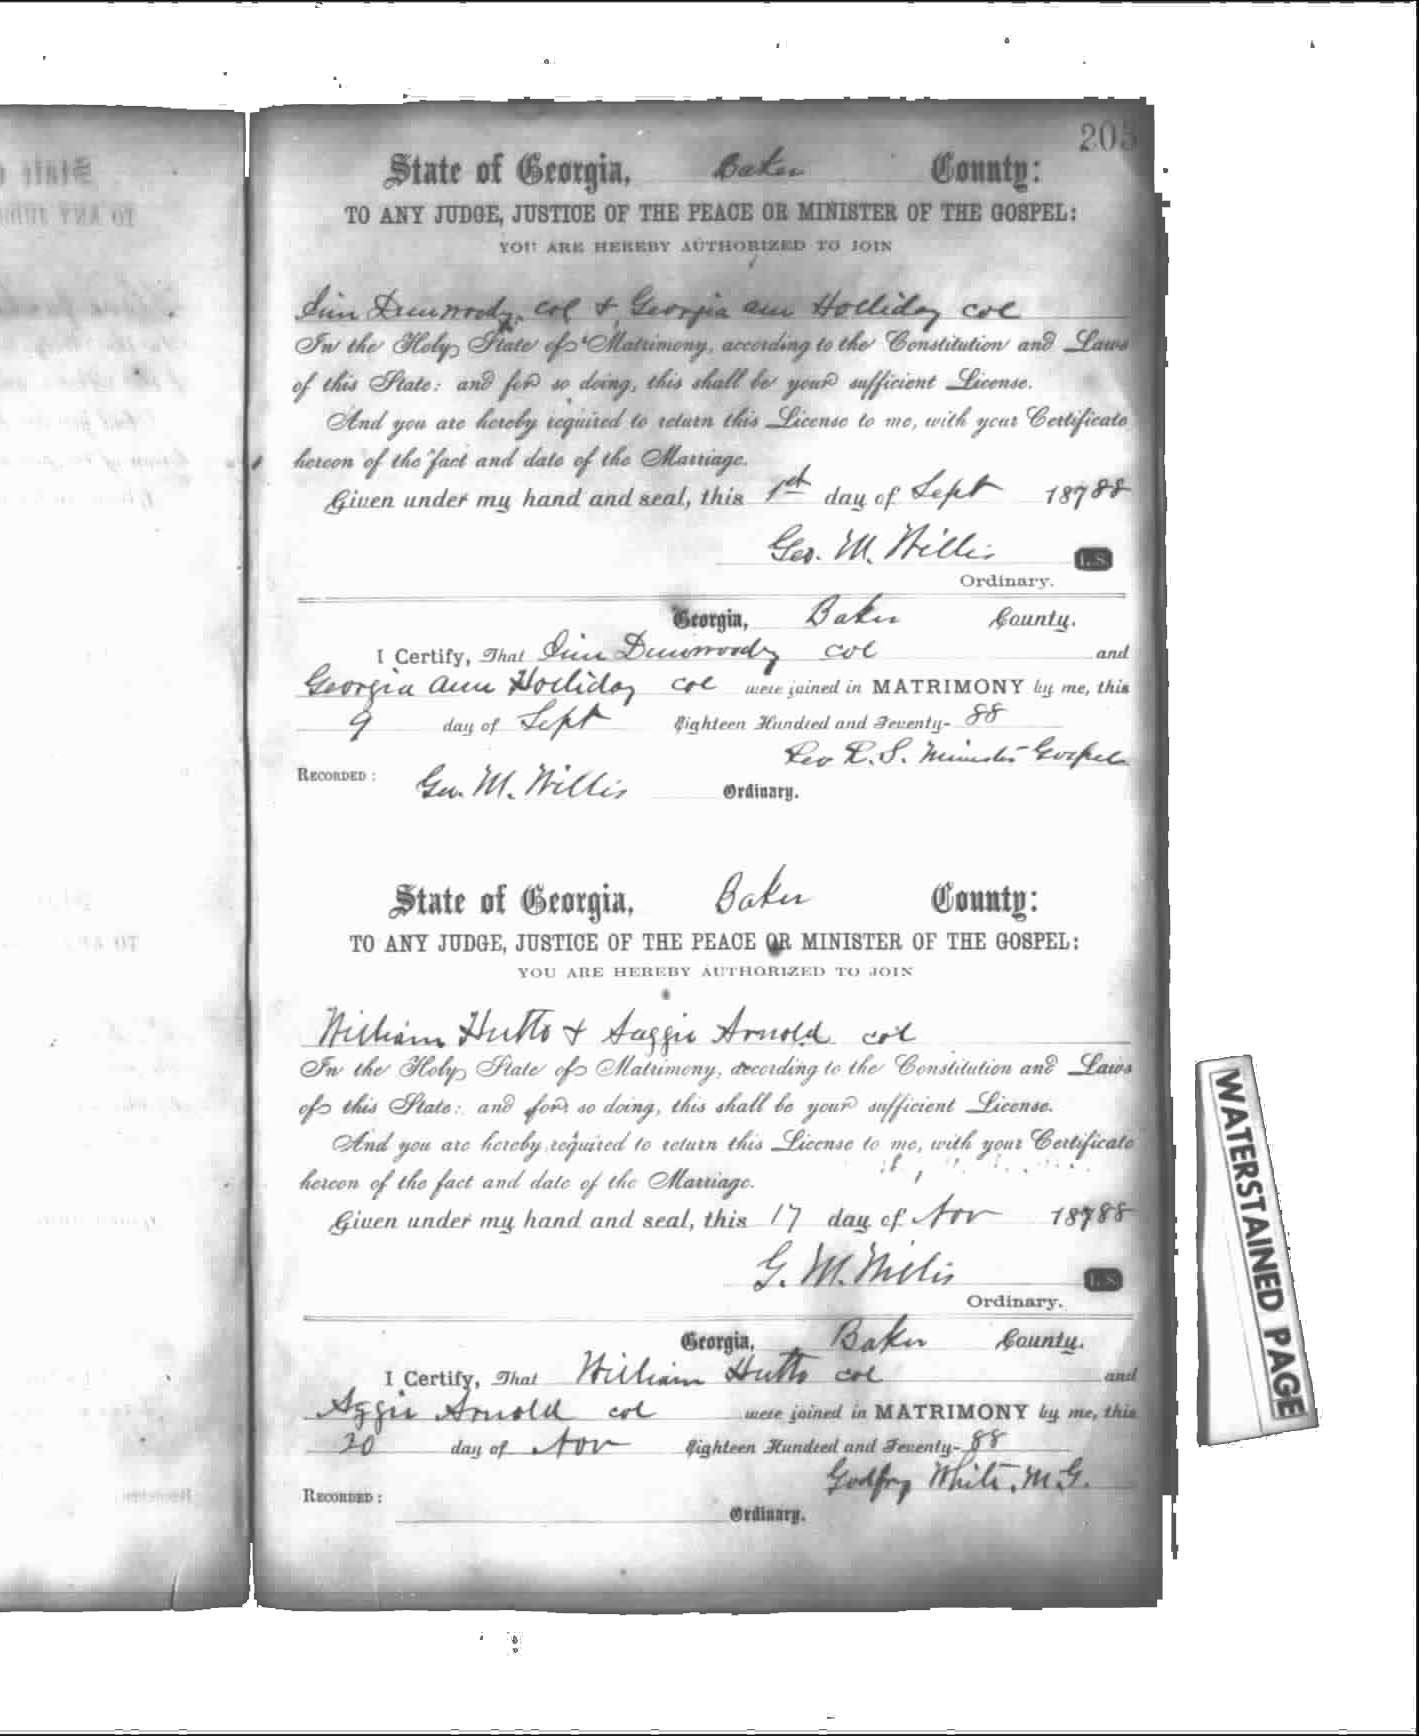 205
State of Georgia, Baker County:
TO ANY JUDGE, JUSTICE OF THE PEACE OR MINISTER OF THE GOSPEL:
YOU ARE HEREBY AUTHORIZED TO JOIN
Jim Dunwoody col & Georgia ann Holliday col
In the Holy State of Matrimony, according to the Constitution and Laws
of this State: and for so doing, this shall be your sufficient License.
And you are hereby required to return this License to me, with your Certificate
hereon of the fact and date of the Marriage.
Given under my hand and seal, this 1st day of Sept 18788
Geo. M. Willis L.S.
Ordinary.
Georgia, Baker County.
I Certify, That Jim Dunwoody col and
Georgia ann Holliday col were joined in MATRIMONY by me, this
9 day of Sept Eighteen Hundred and Seventy- 88
Rev R. S. Minister Gospel
RECORDED: Geo. M. Willis Ordinary.
State of Georgia, Baker County:
TO ANY JUDGE, JUSTICE OF THE PEACE OR MINISTER OF THE GOSPEL:
YOU ARE HEREBY AUTHORIZED TO JOIN
William Hutto & Aggie Arnold col
In the Holy State of Matrimony, according to the Constitution and Laws
of this State: and for so doing, this shall be your sufficient License.
And you are hereby required to return this License to me, with your Certificate
hereon of the fact and date of the Marriage.
Given under my hand and seal, this 17 day of Nov 18788
G. M. Willis L.S.
Ordinary.
Georgia, Baker County.
I Certify, That William Hutto col and
Aggie Arnold col were joined in MATRIMONY by me, this
20 day of Nov Eighteen Hundred and Seventy- 88
Godfry White. M.G.
RECORDED:
Ordinary.
WATERSTAINED PAGE